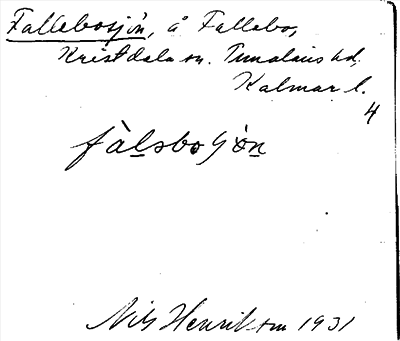 Fallebosjön, å Fallebo,
Kristdala sn. Tunaläns hd,
Kalmar l.
4
fàlsbosjò̀n
Nils Henrikson 1931